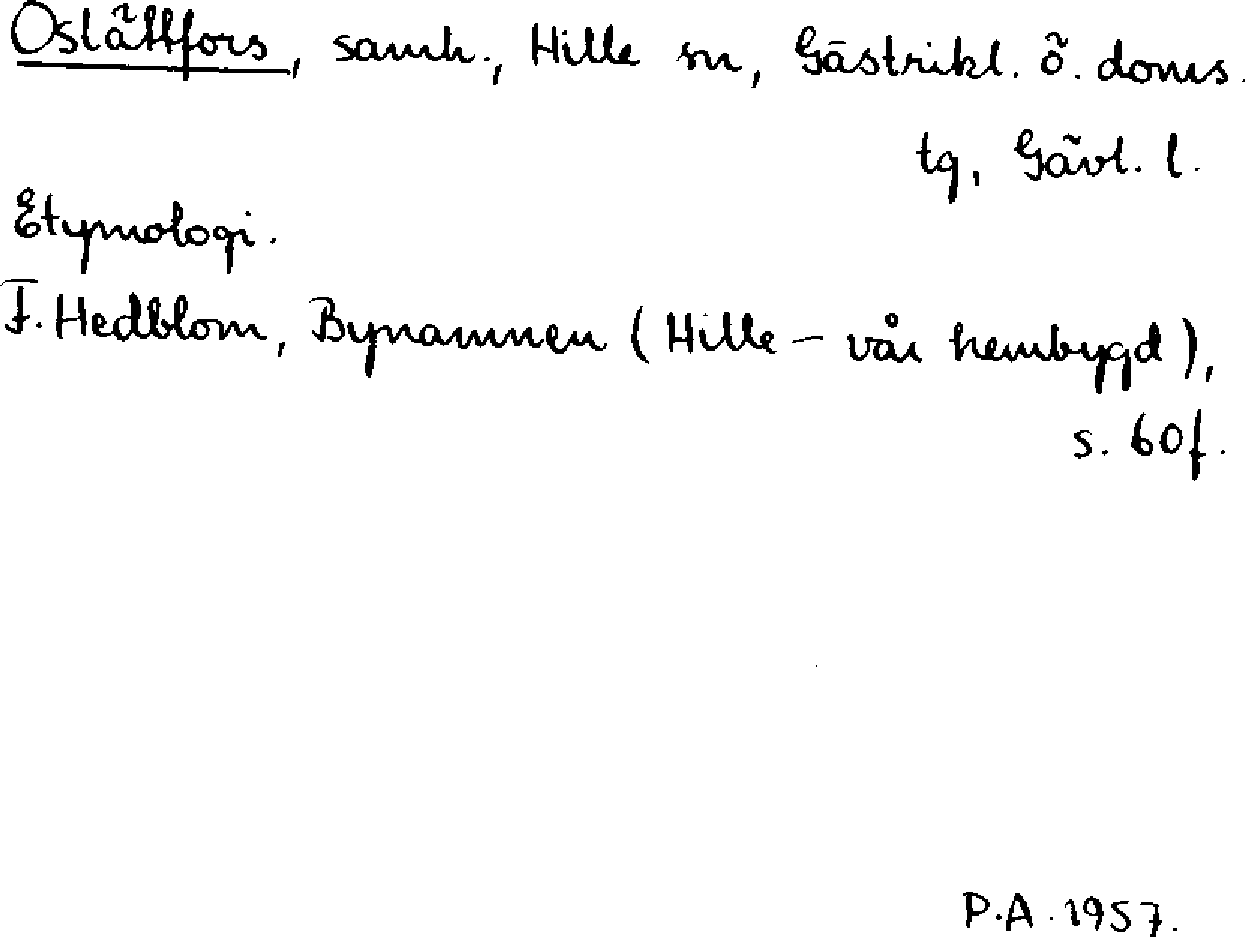 Oslättfors, samh., Hille sn, Gästrikl. ö. doms.
tg, Gävl. l.
Etymologi.
F. Hedblom, Bynamnen (Hille – vår hembygd),
s. 60f.
P.A. 1957.